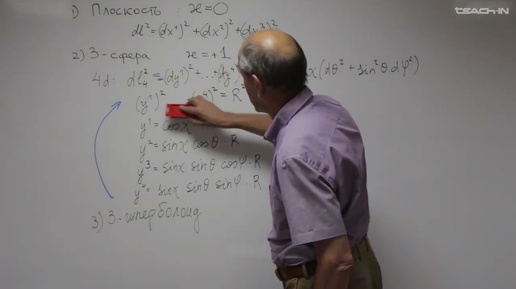 TEACH-IN
1) Плоскость ϰ=0
dl² = (dx¹)² + (dx²)² + (dx³)²
2) 3-сфера ϰ=+1
4d: dl₄² = (dy¹)² + ... + (dy⁴)² χ(dθ² + sin²θ dφ²)
(y¹)² = R²
y¹ = cosχ
y² = sinχ cosθ · R
y³ = sinχ sinθ cosφ · R
y⁴ = sinχ sinθ sinφ · R
3) 3-гиперболоид